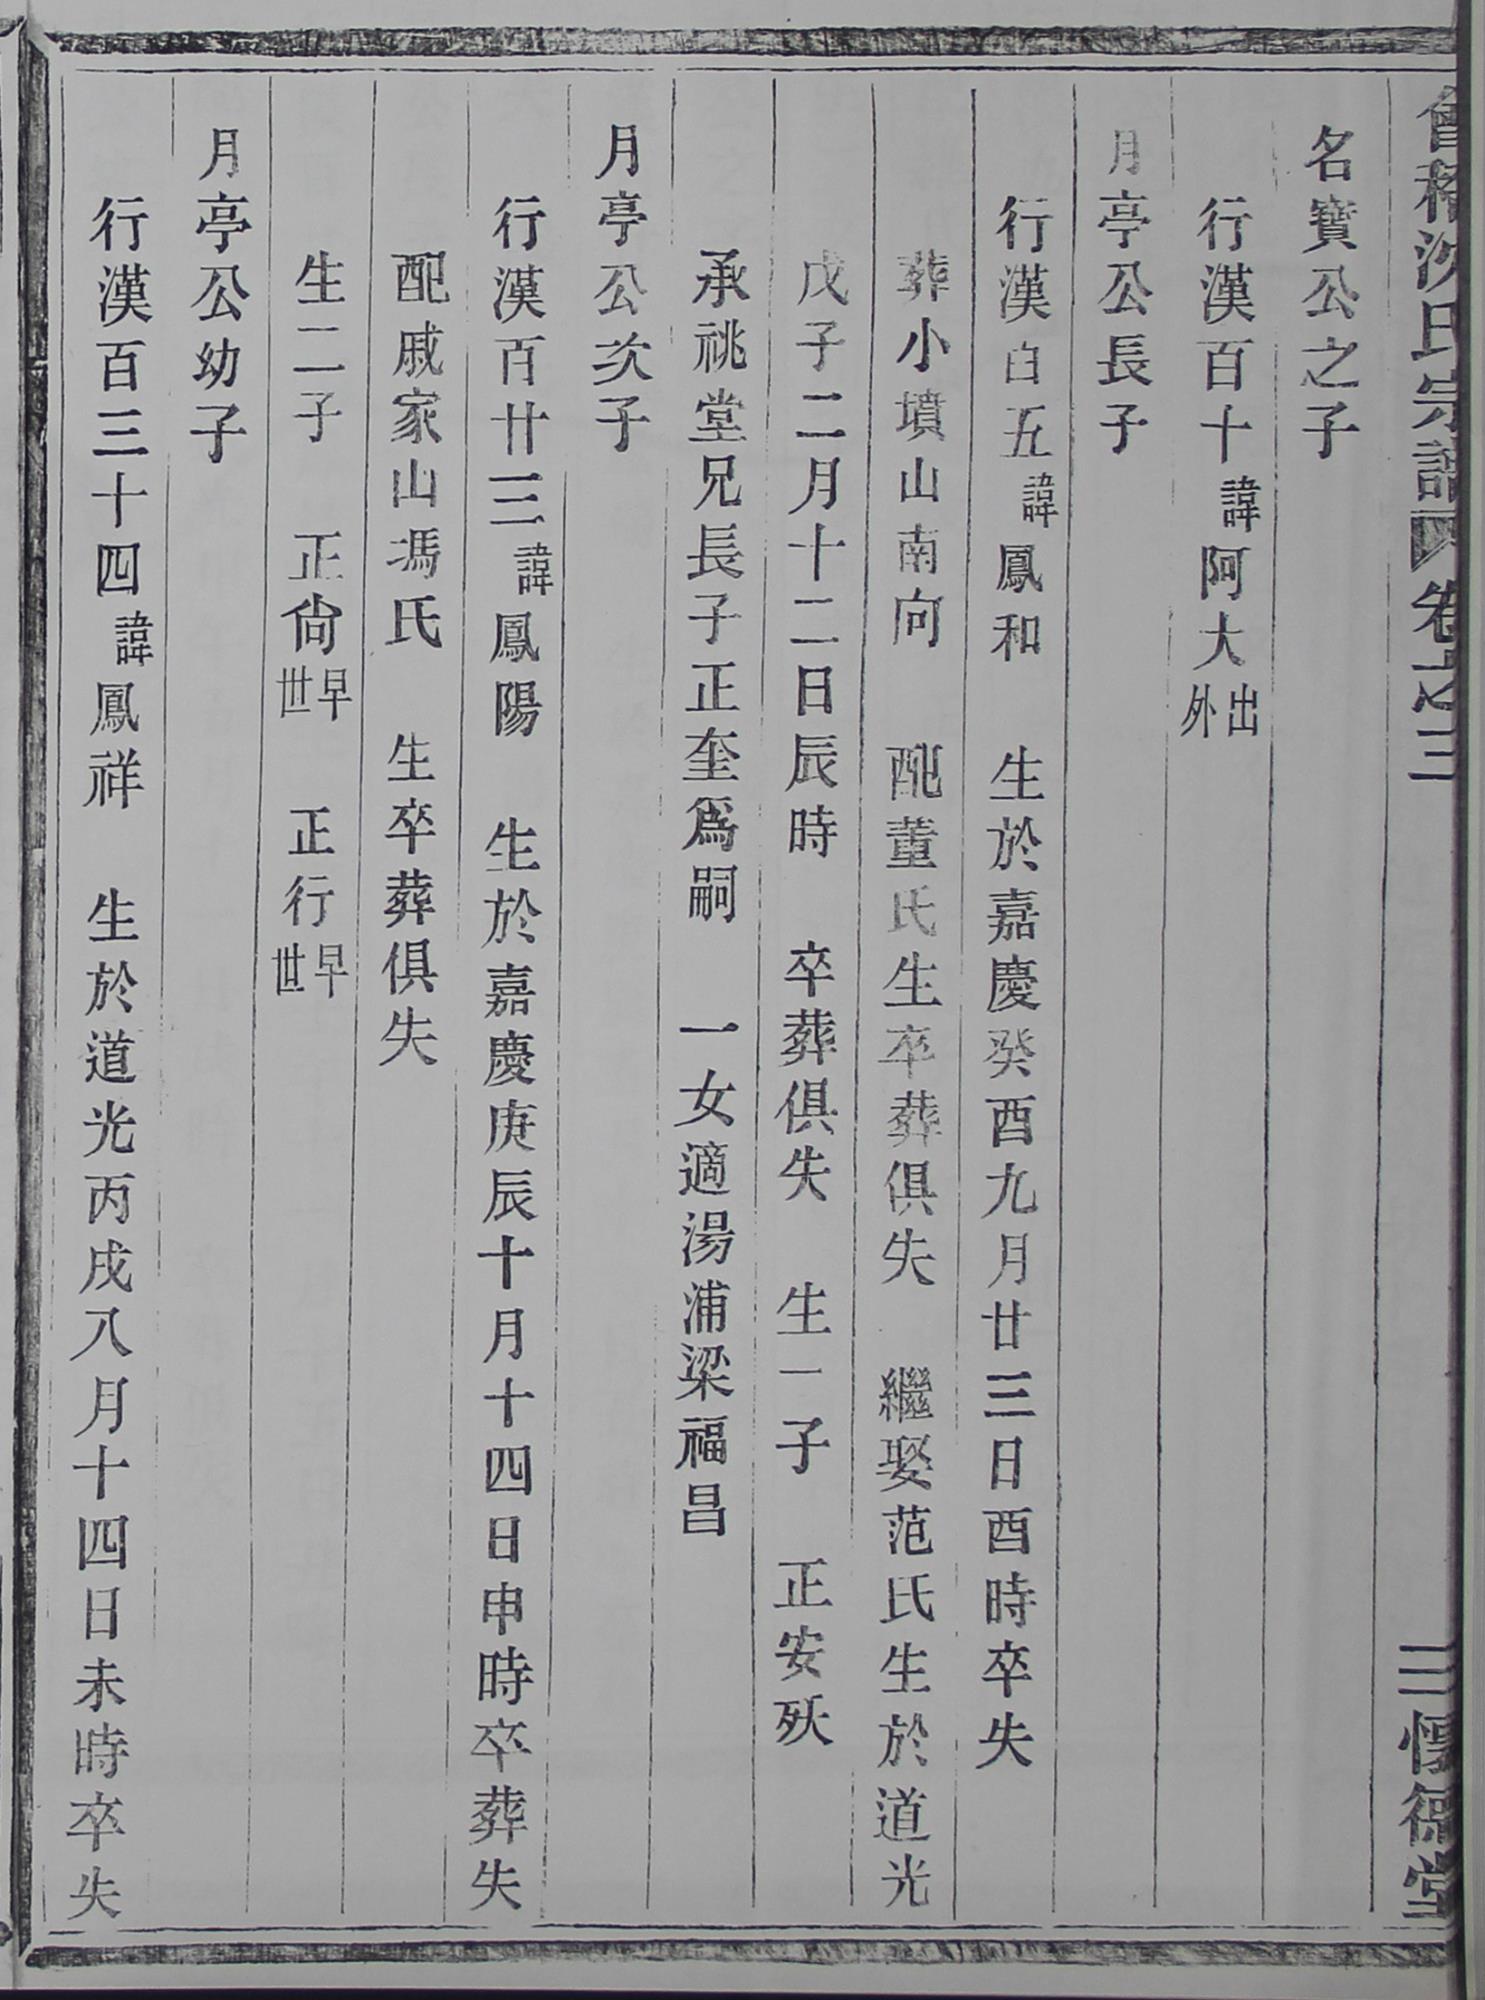 會稽沈氏宗譜 卷之三 三 懷德堂
名寶公之子
行漢百十諱阿大出外
月亭公長子
行漢百五諱鳳和 生於嘉慶癸酉九月廿三日酉時卒失
葬小墳山南向 配董氏生卒葬俱失 繼娶范氏生於道光
戊子二月十二日辰時 卒葬俱失 生一子 正安殀
承祧堂兄長子正奎爲嗣 一女適湯浦梁福昌
月亭公次子
行漢百廿三諱鳳陽 生於嘉慶庚辰十月十四日申時卒葬失
配戚家山馮氏 生卒葬俱失
生二子 正尙早世 正行早世
月亭公幼子
行漢百三十四諱鳳祥 生於道光丙戌八月十四日未時卒失